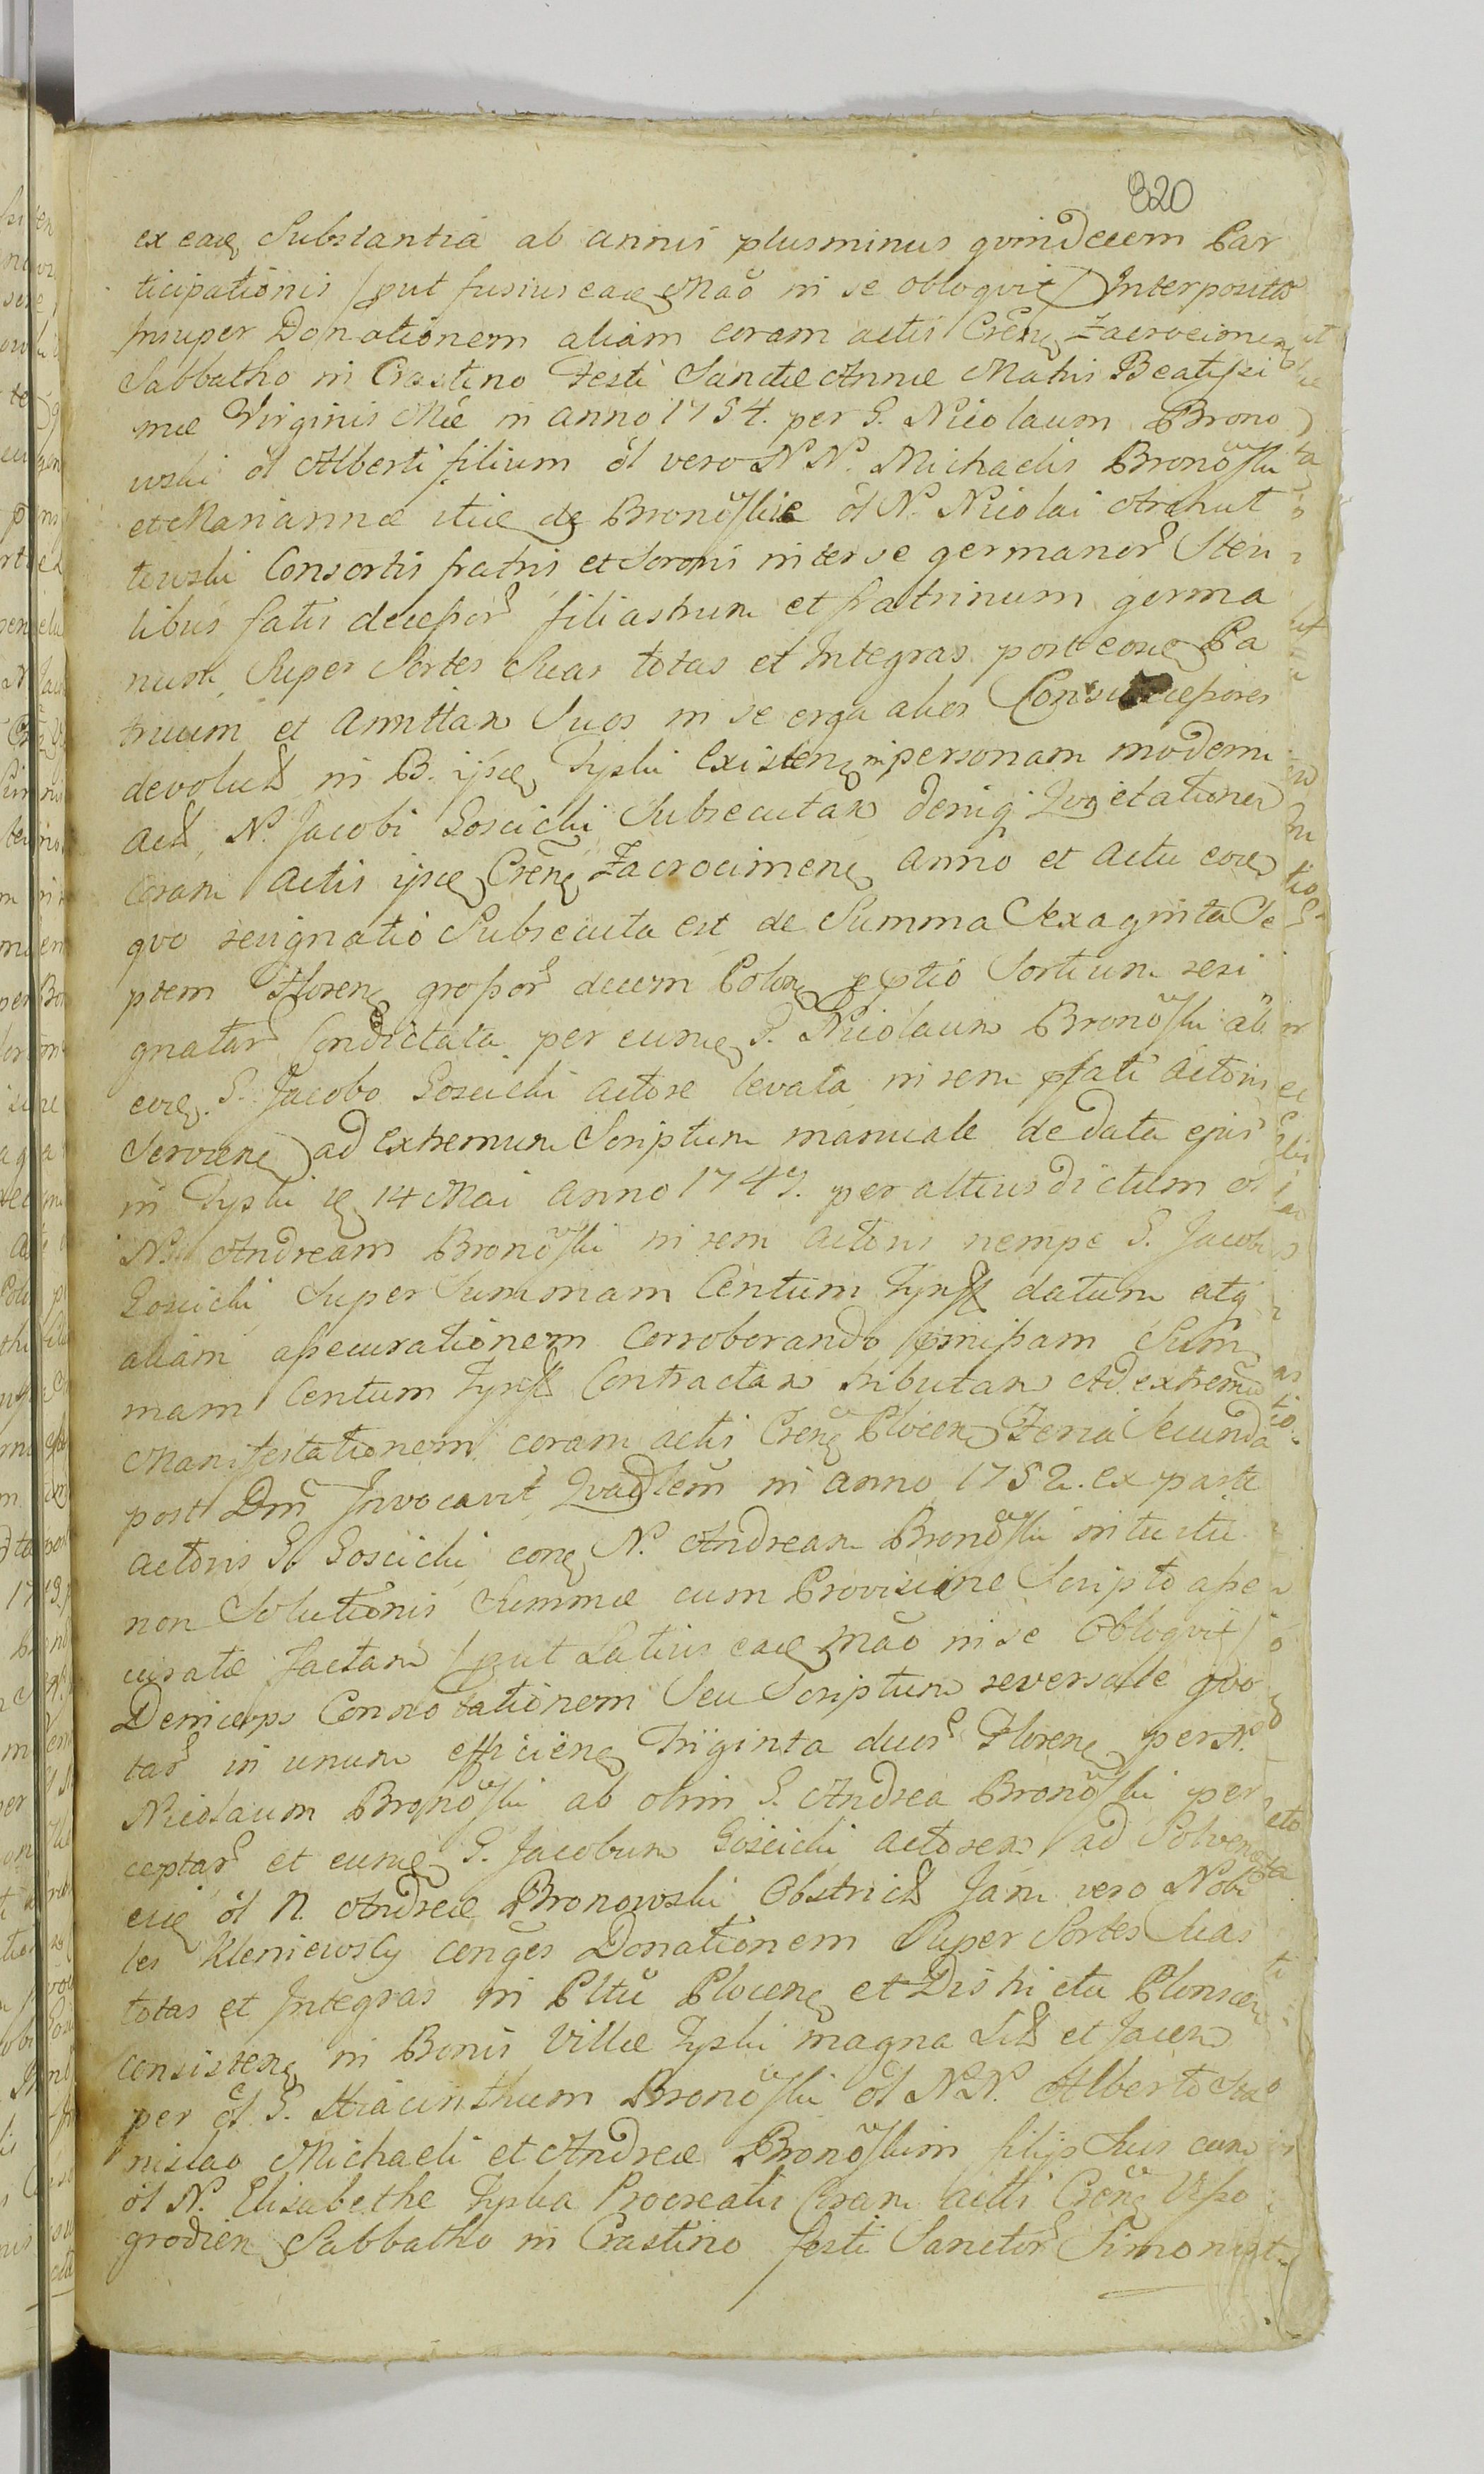 820
ex eadē Substantia ab annis plusminus qvindecem Par
ticipationis /put fusius eadē Mão in se obloqvit/ Interposito
Insuper Donationem aliam coram actis Crēn Zacrocimen
Sabbatho in Crastino Festi Sanctæ Annæ Matris Beatissi
mæ Virginis Mæ in anno 1754. per G. Nicolaum Brono
wski ol Alberti filium ol vero N N. Michaelis Bronowski
et Mariannæ itid de Bronowskie ol N. Nicolai
tewski Consortis fratris et Sororis inter se germanor Steri
libus fatis decessor filiastrum et fratrinum germa
num Super Sortes Suas totas et Integras post eosd Pa
truum et Amittam Suos in se erga alios
devolut in B. ijsd Zyski Existen in personam moderni
Act N. Jacobi Goscicki Subsecutam deniq Qvietationem
Coram Actis ijsd Crēn Zacrocimen anno et Actu eod
qvo resignatio Subsecuta est de Summa Sexaginta Se
ptem Floren grossor decem Polon ptio Sortium resi
gnatar Condictata per eumd G. Nicolaum Bronowski ab
eod G. Jacobo Goscicki actore levata in rem pfati actoris
Servien ad extremum Scriptum manuale de data ejus
in Zyski d 14 Mai anno 1749. per altius dictum ol
N. Andream Bronowski in rem actoris nempe G. Jacobi
Goscicki Super Summam Centum Tynff datum atq
aliam assecurationem corroborando eandem Sum
mam Centum Tynff Contractam tributam Ad extremū
Manifestationem coram actis Crēn Plocen Feria Secunda
post Dm̄ Invocavit Qvadlem in anno 1752. ex parte
actoris G. Goscicki con N. Andream Bronowski intuitu
non Solutionis Summæ cum Provisione Scripto asse
curatæ factam /put Latius eadē Mão in se Obloqvit/
Deinceps Connotationem Seu Scriptum reversale qvo
tar in unum efficien Triginta duor Floren per N.
Nicolaum Bronowski ab olim G. Andrea Bronowski per
ceptar et eumd G. Jacobum Goscicki actorem ad Solven
eid ol N. Andreæ Bronowski Obstrict Jam vero Nobi
les Kleniewscy conges Donationem Super Sortes Suas
totas et Integras in Pltū Plocen et Districtu Plonscen
consisten in Bonis Villæ Zyski magna Lit et Jacen
per ol G. Hiacinthum Bronowski ol N.N. Alberto Sta
nislao Michaeli et Andreæ Bronowskim filijs Suis cum
ol N. Elisabethe Zyska Procreatis Coram actis Crēn Visso
grodien Sabbatho in Crastino festi Sanctor Simonis et